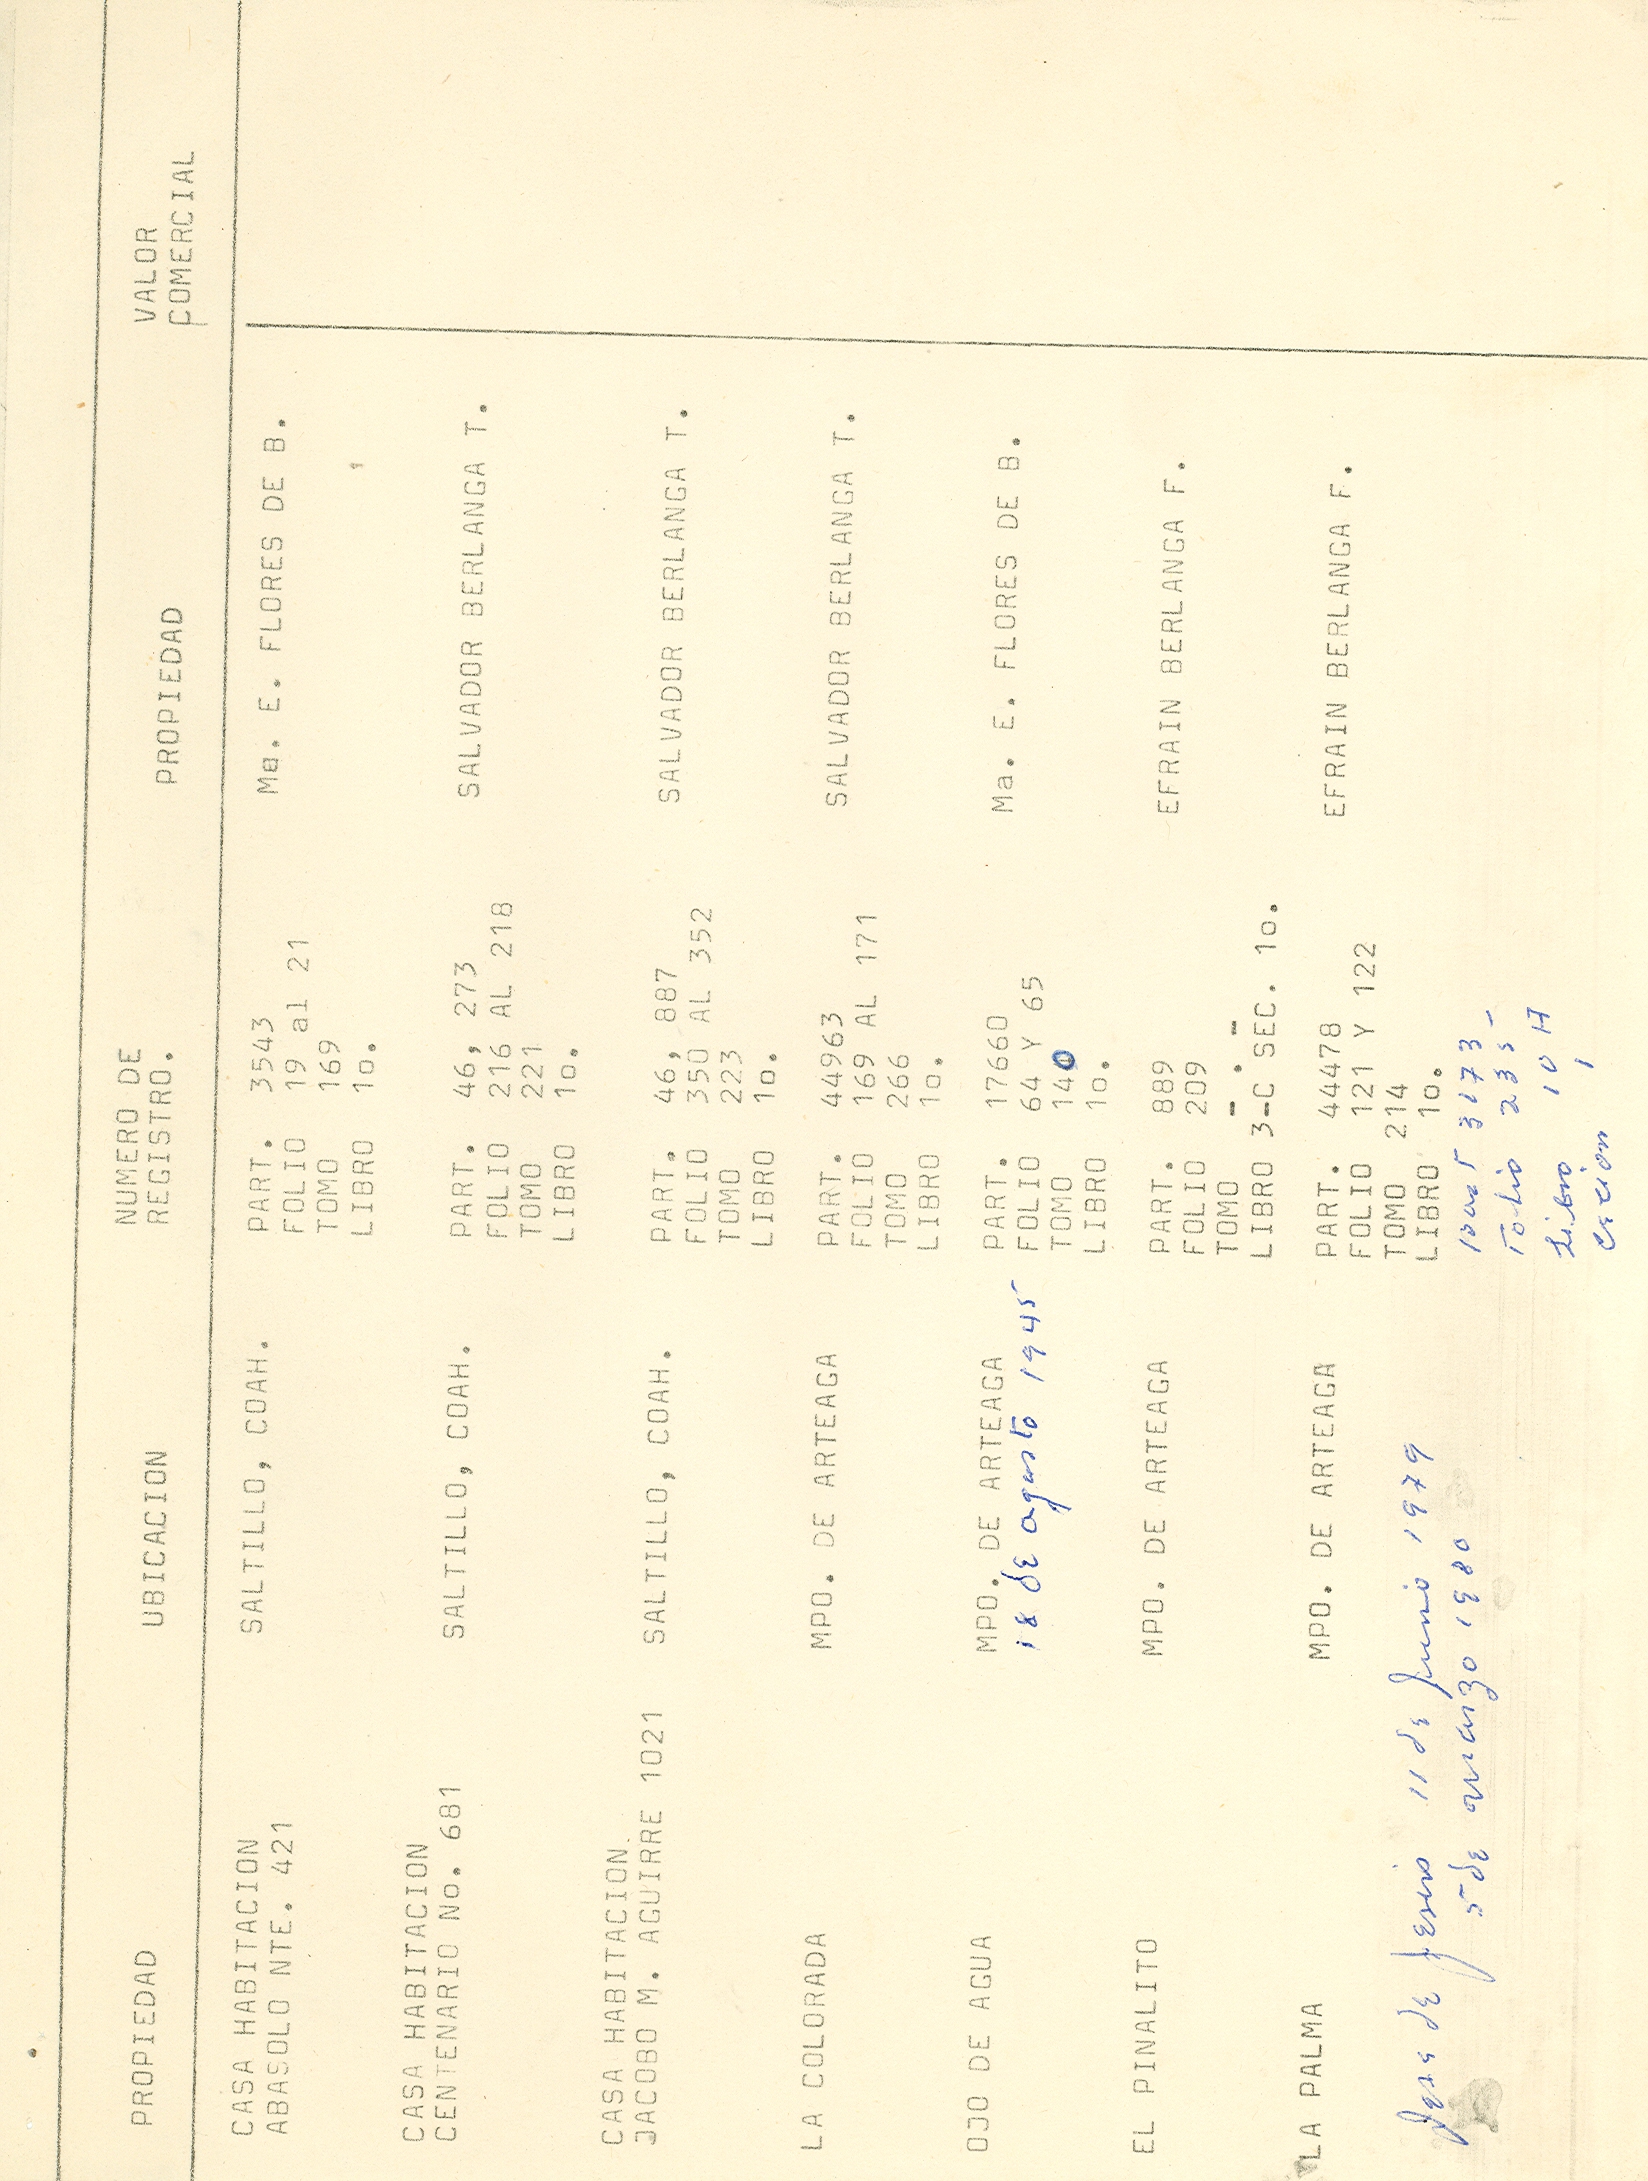 NUMERO DE VALOR
PROPIEDAD UBICACION REGISTRO. PROPIEDAD COMERCIAL
CASA HABITACION SALTILLO, COAH. PART. 3543 Ma. E. FLORES DE B.
ABASOLO NTE. 421 FOLIO 19 al 21
TOMO 169
LIBRO 1o.
CASA HABITACION
CENTENARIO No. 681 SALTILLO, COAH. PART. 46, 273 SALVADOR BERLANGA T.
FOLIO 216 AL 218
TOMO 221
LIBRO 1o.
CASA HABITACION
JACOBO M. AGUIRRE 1021 SALTILLO, COAH. PART. 46, 887 SALVADOR BERLANGA T.
FOLIO 350 AL 352
TOMO 223
LIBRO 1o.
LA COLORADA MPO. DE ARTEAGA PART. 44963 SALVADOR BERLANGA T.
FOLIO 169 AL 171
TOMO 266
LIBRO 1o.
OJO DE AGUA MPO. DE ARTEAGA PART. 17660 Ma. E. FLORES DE B.
18 de agosto 1945 FOLIO 64 Y 65
TOMO 140
LIBRO 1o.
EL PINALITO MPO. DE ARTEAGA PART. 889 EFRAIN BERLANGA F.
FOLIO 209
TOMO -.-.-
LIBRO 3-C SEC. 1o.
LA PALMA MPO. DE ARTEAGA PART. 44478 EFRAIN BERLANGA F.
FOLIO 121 Y 122
TOMO 214
LIBRO 1o.
de 11 de Junio 1979
5 de marzo 1980
Folio 235-
Libro 10 A